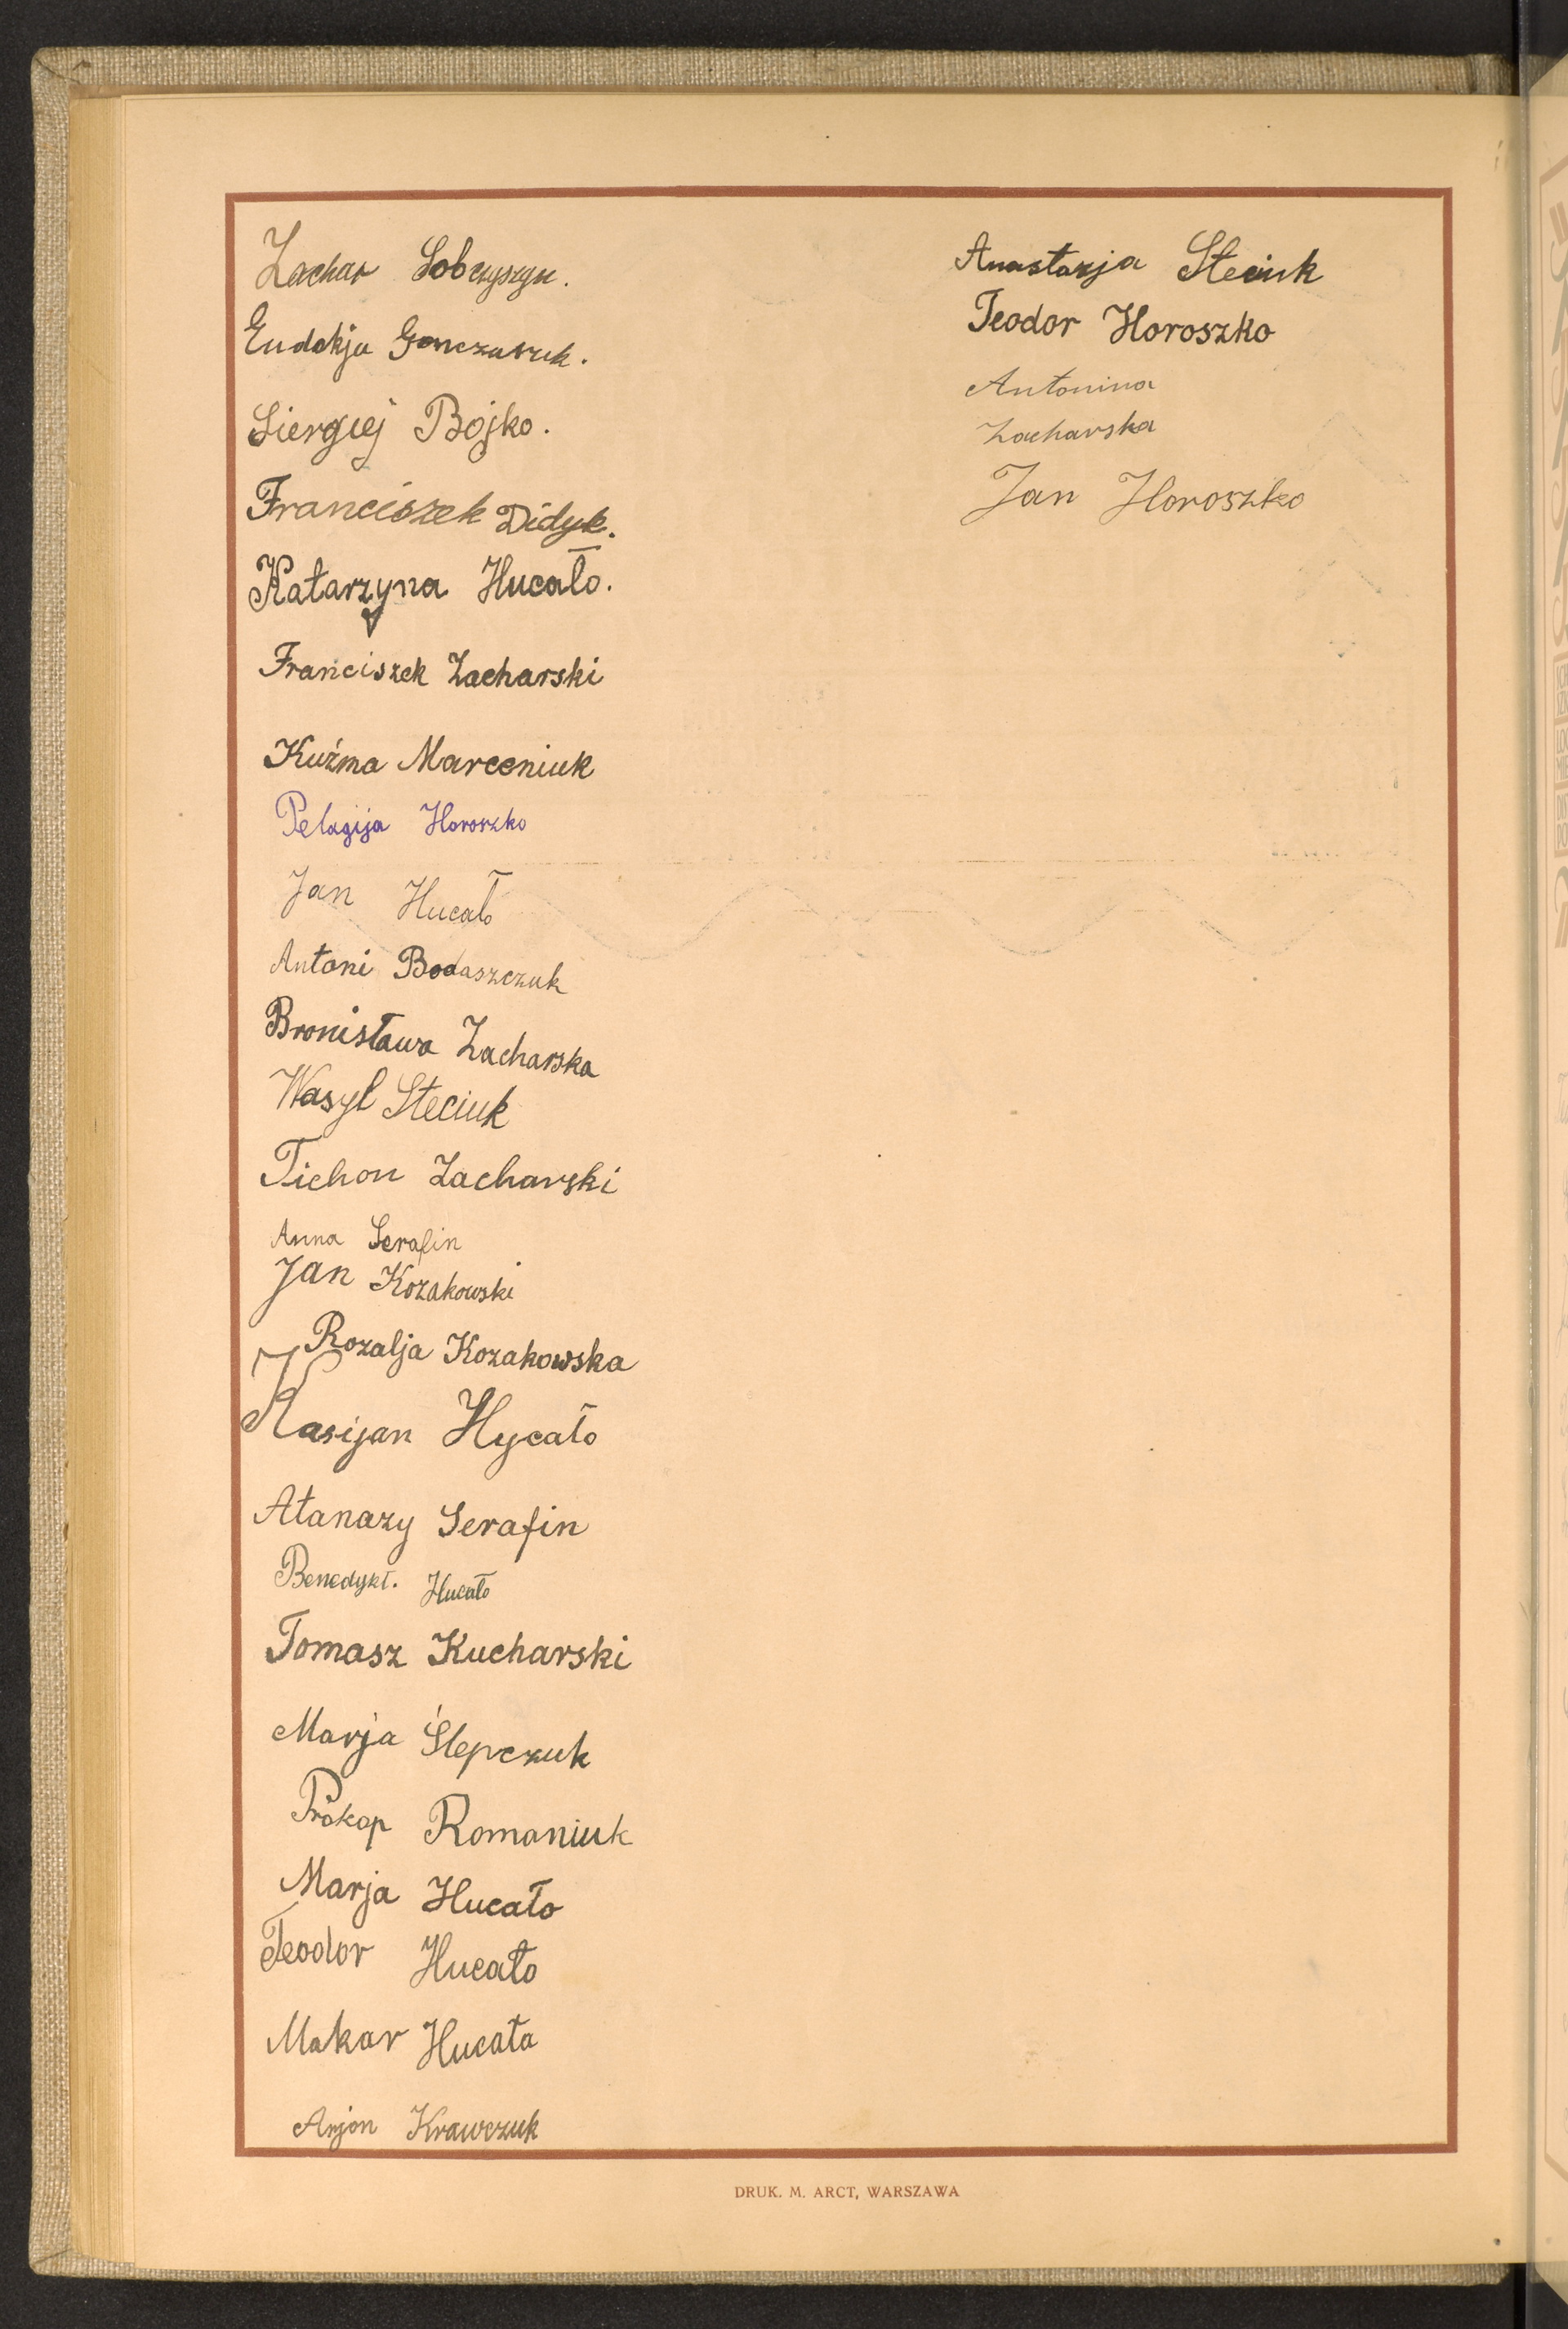 Zachar Sobczyszyn.
Eudokja Gonczaruk.
Siergiej Bojko.
Franciszek Didyk.
Katarzyna Hucało.
Franciszek Zacharski
Kuźma Marceniuk
Pelagija Horoszko
Jan Hucało
Antoni Bodaszczuk
Bronisława Zacharska
Wasyl Steciuk
Tichon Zacharski
Anna Serafin
Jan Kozakowski
Rozalja Kozakowska
Kasijan Hycało
Atanazy Serafin
Benedykt. Hucało
Tomasz Kucharski
Marja Ślepczuk
Prokop Romaniuk
Marja Hucało
Teodor Hucało
Makar Hucała
Krawczuk
Anastazja Steciuk
Teodor Horoszko
Antonina
Zacharska
Jan Horoszko
DRUK. M. ARCT, WARSZAWA